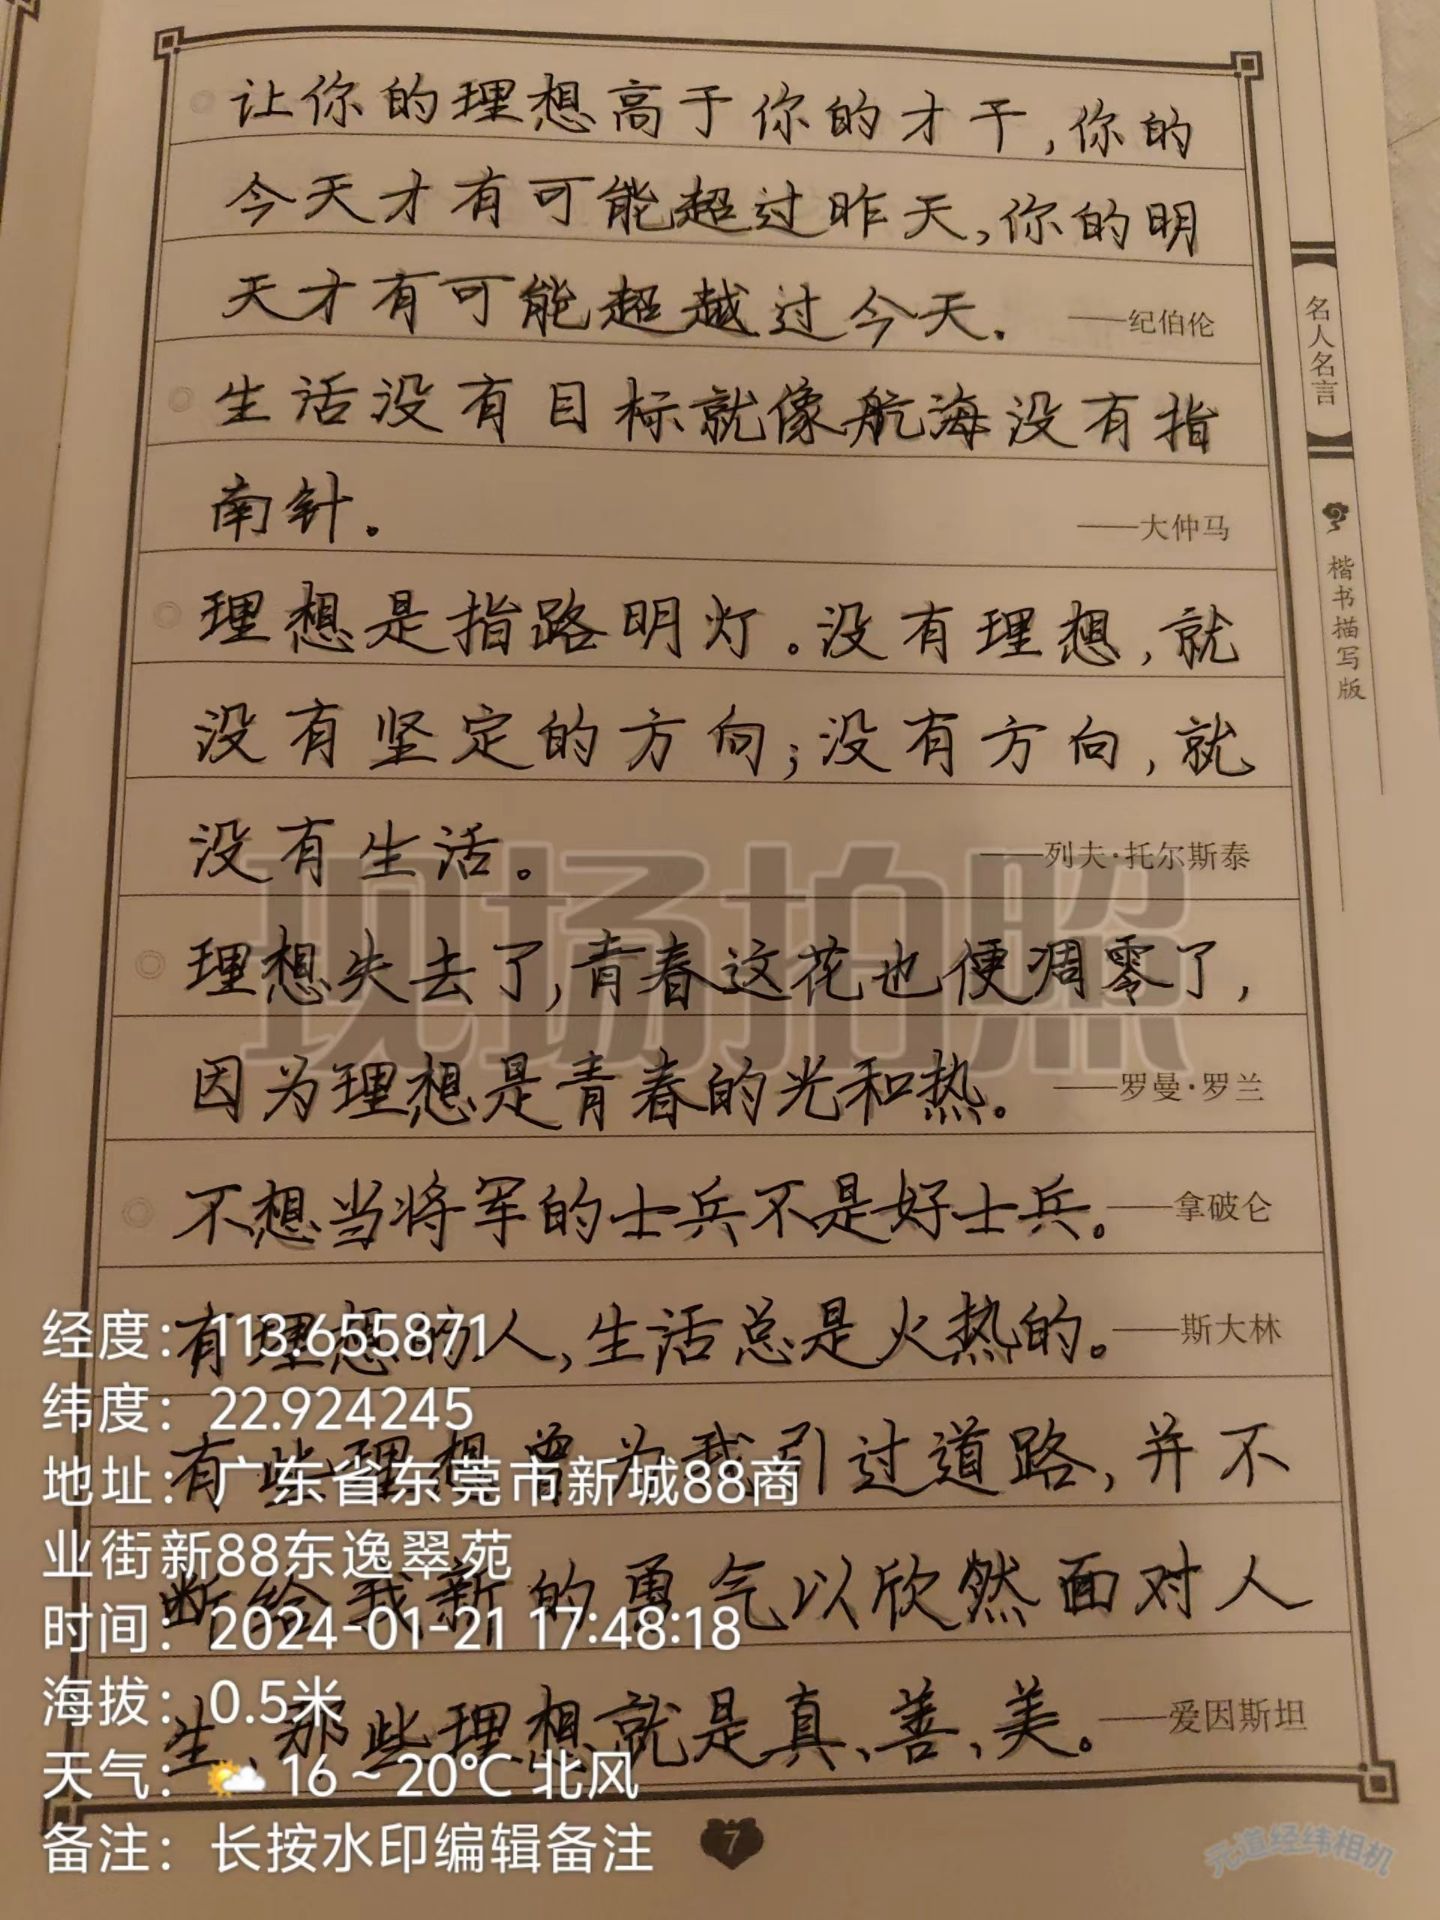 让你的理想高于你的才干,你的
今天才有可能超过昨天,你的明
天才有可能超越过今天. ——纪伯伦
生活没有目标就像航海没有指
南针。 ——大仲马
理想是指路明灯。没有理想,就
没有坚定的方向;没有方向,就
没有生活。 ——列夫·托尔斯泰
理想失去了,青春这花也便凋零了,
因为理想是青春的光和热。 ——罗曼·罗兰
不想当将军的士兵不是好士兵。——拿破仑
有理想的人,生活总是火热的。——斯大林
有些理想曾为我引过道路,并不
断给我新的勇气以欣然面对人
生,那些理想就是真、善、美。——爱因斯坦
名人名言
楷书描写版
7
现场拍照
经度:113.655871
纬度:22.924245
地址:广东省东莞市新城88商
业街新88东逸翠苑
时间:2024-01-21 17:48:18
海拔:0.5米
天气:16~20℃ 北风
备注:长按水印编辑备注
元道经纬相机